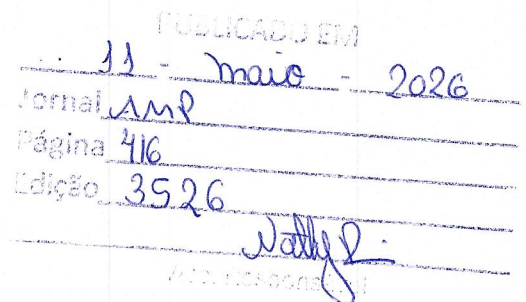 PUBLICADO EM
11 - maio - 2026
Jornal AMP
Página 416
Edição 3526